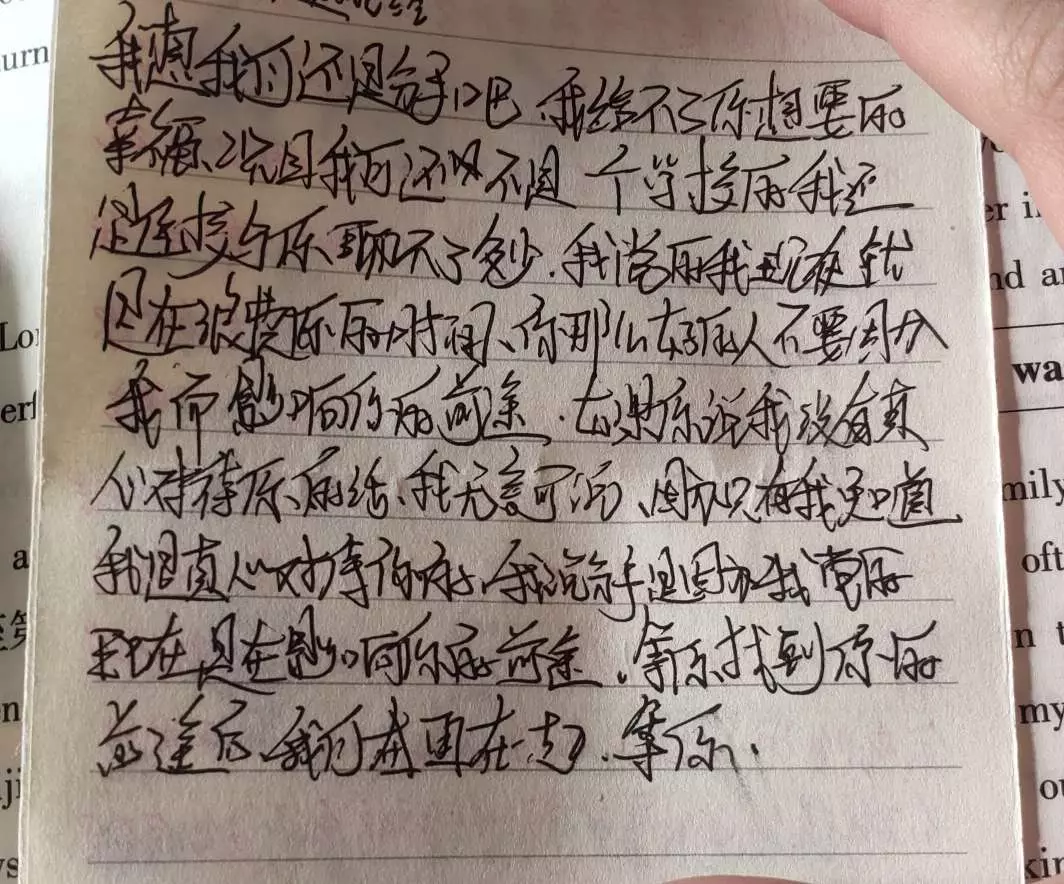 我想我们还是分手吧、我给不了你想要的
幸福、况且我们还又不是一个学校的我还
是连接与你聊不了多少.我觉的我现在就
是在浪费你的时间、你那么好的人不要因为
我而影响你的前途.如果你说我没有真
心对待你的话、我无言可说、因为只有我知道
我是真心对待你的、我说分手是因为我觉的
现在是在影响你的前途.等你找到你的
前途后、我们在再在一起.等你、
urn
Lo
wa
mily
oft
my